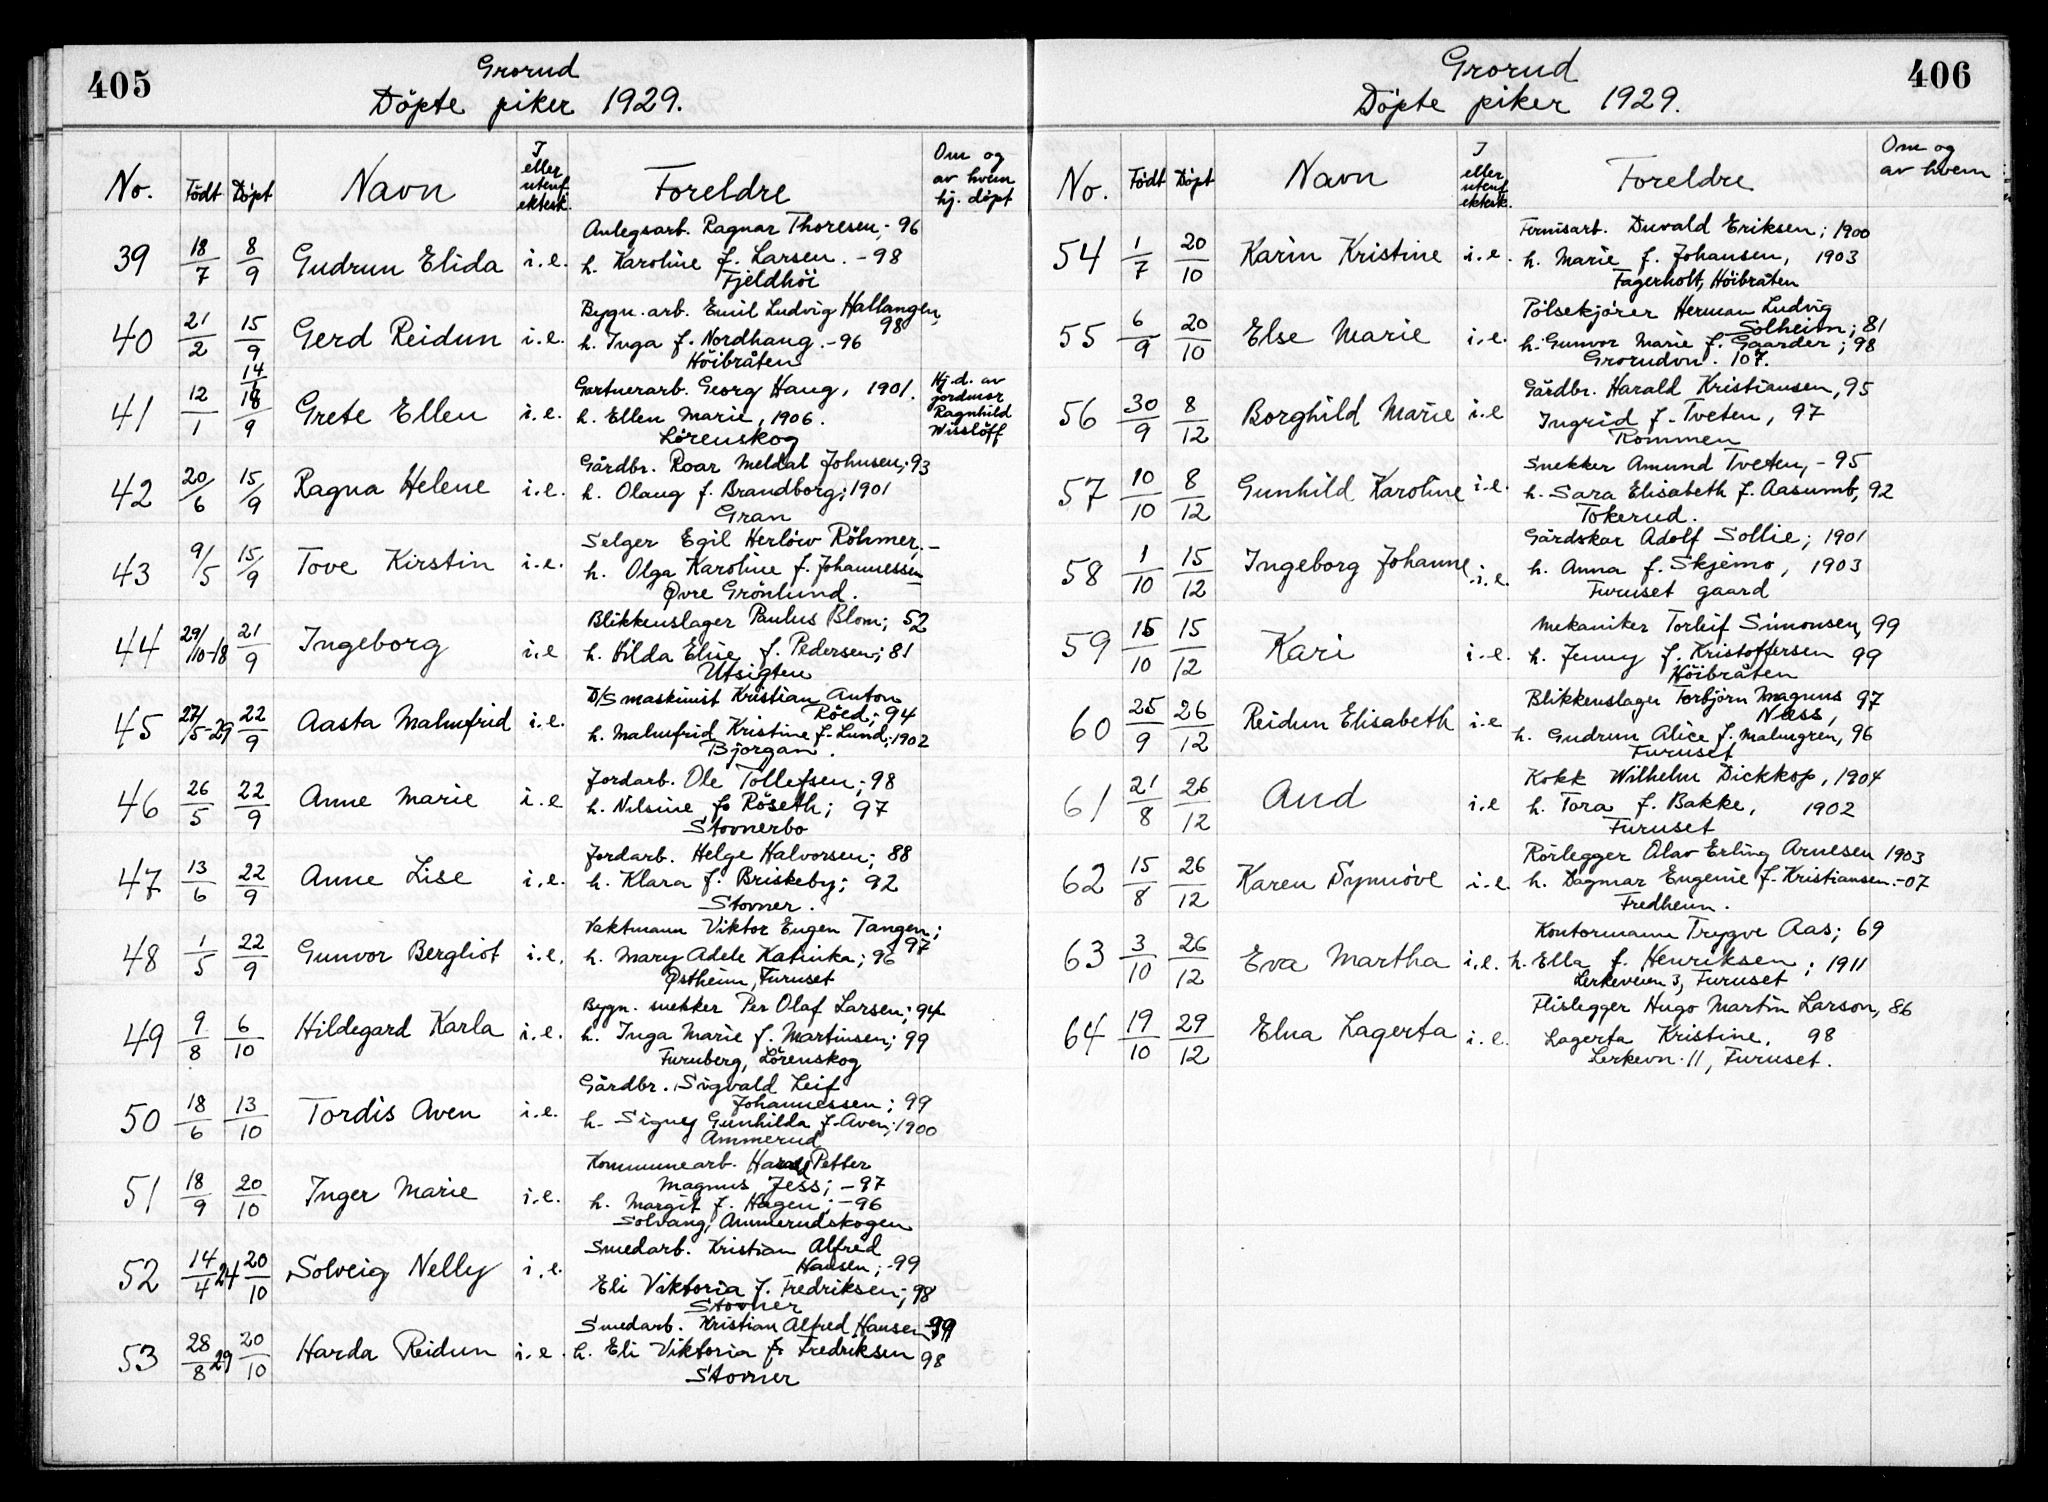 405
Grorud
Döpte piker 1929.
No. Födt Döpt Navn I eller utenf. ektesk. Foreldre Om og av hvem hj. döpt
39 18/7 8/9 Gudrun Elida i.e. Anlegsarb. Ragnar Thoresen, -96
h. Karoline f. Larsen. -98
Fjeldhöi
40 21/2 15/9 Gerd Reidun i.e. Bygn. arb. Emil Ludvig Hallangen, 98
h. Inga f. Nordhaug. -96
Höibråten
41 12/1 14/1 18/9 Grete Ellen i.e. Gartnerarb. Georg Haug, 1901. Hj.d. av jordmor Ragnhild Wisslöff
h. Ellen Marie, 1906.
Lörenskog
42 20/6 15/9 Ragna Helene i.e. Gårdbr. Roar Meldal Johnsen; 93
h. Olaug f. Brandborg; 1901
Gran
43 9/5 15/9 Tove Kirstin i.e. Selger Egil Herlow Röhmer, -
h. Olga Karoline f. Johannessen
Øvre Grönlund.
44 29/10-18 21/9 Ingeborg i.e Blikkenslager Paulus Blom; 52
h. Hilda Elise f. Pedersen; 81
Utsigten
45 27/5-29 22/9 Aasta Malmfrid i.e. D/S maskinist Kristian Anton
Röed; 94
h. Malmfrid Kristine f. Lund; 1902
Bjorgan.
46 26/5 22/9 Anne Marie i.e Jordarb. Ole Tollefsen; 98
h. Nilsine f. Röseth; 97
Stovnerbo
47 13/6 22/9 Anne Lise i.e. Jordarb. Helge Halvorsen; 88
h. Klara f. Briskeby; 92
Stovner.
48 1/5 22/9 Gunvor Bergliot i.e. Vaktmann Viktor Eugen Tangen; 97
h. Mary Adele Katinka; 96
Østheim, Furuset
49 9/8 6/10 Hildegard Karla i.e. Bygn. snekker Per Olaf Larsen; 94
h. Inga Marie f. Martinsen; 99
Furuberg, Lörenskog
50 18/6 13/10 Tordis Aven i.e. Gårdbr. Sigvald Leif
Johannessen; 99
h. Signey Gunhilda f. Aven; 1900
Ammerud
51 18/9 20/10 Inger Marie i.e. Kommunearb. Harald Petter
Magnus Jess; -97
h. Margit f. Hagen; -96
Solvang, Ammerudskogen
52 14/4 24 20/10 Solveig Nelly i.e. Smedarb. Kristian Alfred
Hansen; -99
Eli Viktoria f. Fredriksen; 98
Stovner
53 28/8 29 20/10 Harda Reidun i.e. Smedarb. Kristian Alfred Hansen -99
h. Eli Viktoria f. Fredriksen 98
Stovner
406
Grorud
Döpte piker 1929.
No. Födt Döpt Navn I eller utenf. ektesk. Foreldre Om og av hvem
54 1/7 20/10 Karin Kristine i.e. Fernisarb. Duvald Eriksen; 1900
h. Marie f. Johansen, 1903
Fagerholt, Höibråten
55 6/9 20/10 Else Marie i.e. Pölsekjörer Herman Ludvig
Solheim; 81
h. Gunvor Marie f. Gaarder; 98
Grorudvn. 107.
56 30/9 8/12 Borghild Marie i.e Gårdbr. Harald Kristiansen, 95
Ingrid f. Tveten, 97
Rommen
57 10/10 8/12 Gunhild Karoline i.e. Snekker Amund Tveten, -95
h. Sara Elisabeth f. Aasumb, 92
Tokerud.
58 1/10 15/12 Ingeborg Johanne i.e. Gårdskar Adolf Sollie; 1901
h. Anna f. Skjemo, 1903
Furuset gaard
59 15/10 15/12 Kari i.e. Mekaniker Torleif Simonsen, 99
h. Jenny f. Kristoffersen 99
Höibråten
60 25/9 26/12 Reidun Elisabeth i.e Blikkenslager Torbjörn Magnus 97
Næss,
h. Gudrun Alice f. Malmgren, 96
Furuset
61 21/8 26/12 Aud i.e Kokk Wilhelm Dickkop, 1904
h. Tora f. Bakke, 1902
Furuset
62 15/8 26/12 Karen Synnöve i.e. Rörlegger Olav Erling Arnesen 1903
h. Dagmar Eugenie f. Kristiansen. -07
Fredheim.
63 3/10 26/12 Eva Martha i.e. Kontormann Trygve Aas; 69
h. Ella f. Henriksen; 1911
Lerkeveien 3, Furuset
64 19/10 29/12 Elna Lagerta i.e. Flislegger Hugo Martin Larson, 86
Lagerta Kristine. 98
Lerkevn. 11, Furuset.